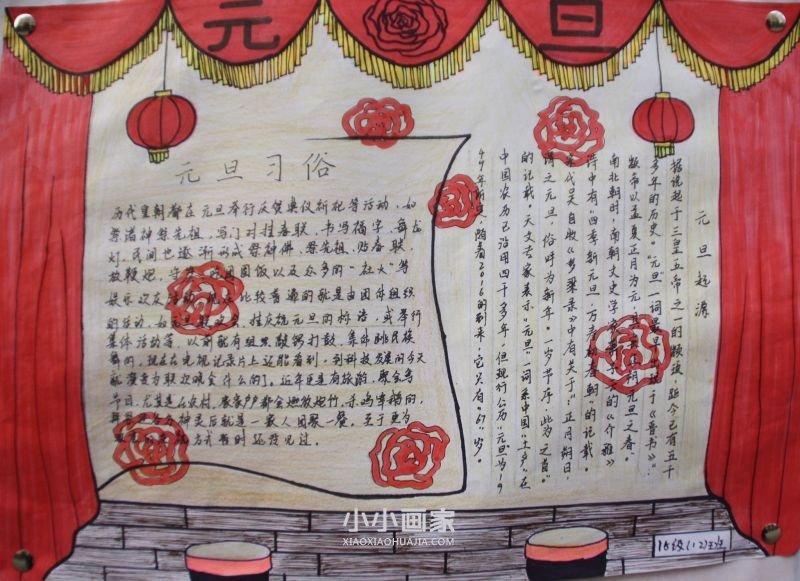 元
旦
元旦习俗
历代皇朝都在元旦举行庆贺典仪祈祀等活动,如
祭诸神祭先祖,写门对挂春联,书写福字、舞龙
灯,民间也逐渐形成祭神佛、祭先祖、贴春联、
放鞭炮、守岁、吃团圆饭以及众多的“社火”等
娱乐欢庆活动。比较普遍的就是由团体组织
的活动,如元旦挂庆祝元旦的标语,或举行
集体活动等,以前有组织敲锣打鼓,集体跳民族
舞的,现在在电视记录片上还能看到,到科技发展的今天
就演变为联欢晚会什么的了。近年更是有旅游、聚会
节目,尤其是在农村,家家户户都会燃放炮竹,杀鸡宰鹅的,
各方神灵后就是一家人团聚一餐。至于更为
方式暂时还没见过。
元旦起源
据说起于三皇五帝之一的颛顼,距今已有五千
多年的历史。“元旦”一词最早出现于《晋书》:
颛帝以孟夏正月为元,其实正朔元旦之春”
南北朝时,南朝文史学家萧子云的《介雅》
诗中有“四季新元旦,万寿初春朝”的记载。
宋代吴自牧《梦粱录》中有关于“:正月朔日,
谓之元旦,俗呼为新年。一岁节序,此为之首”
的记载。天文专家表示“元旦”一词系中国“土乡”在
中国农历已沿用四千多年,但现行公历“元旦”为19
49年所设,随着2016的到来,它只有“67”岁。
小小画家
XIAOXIAOHUAJIA.COM
15级(12)班